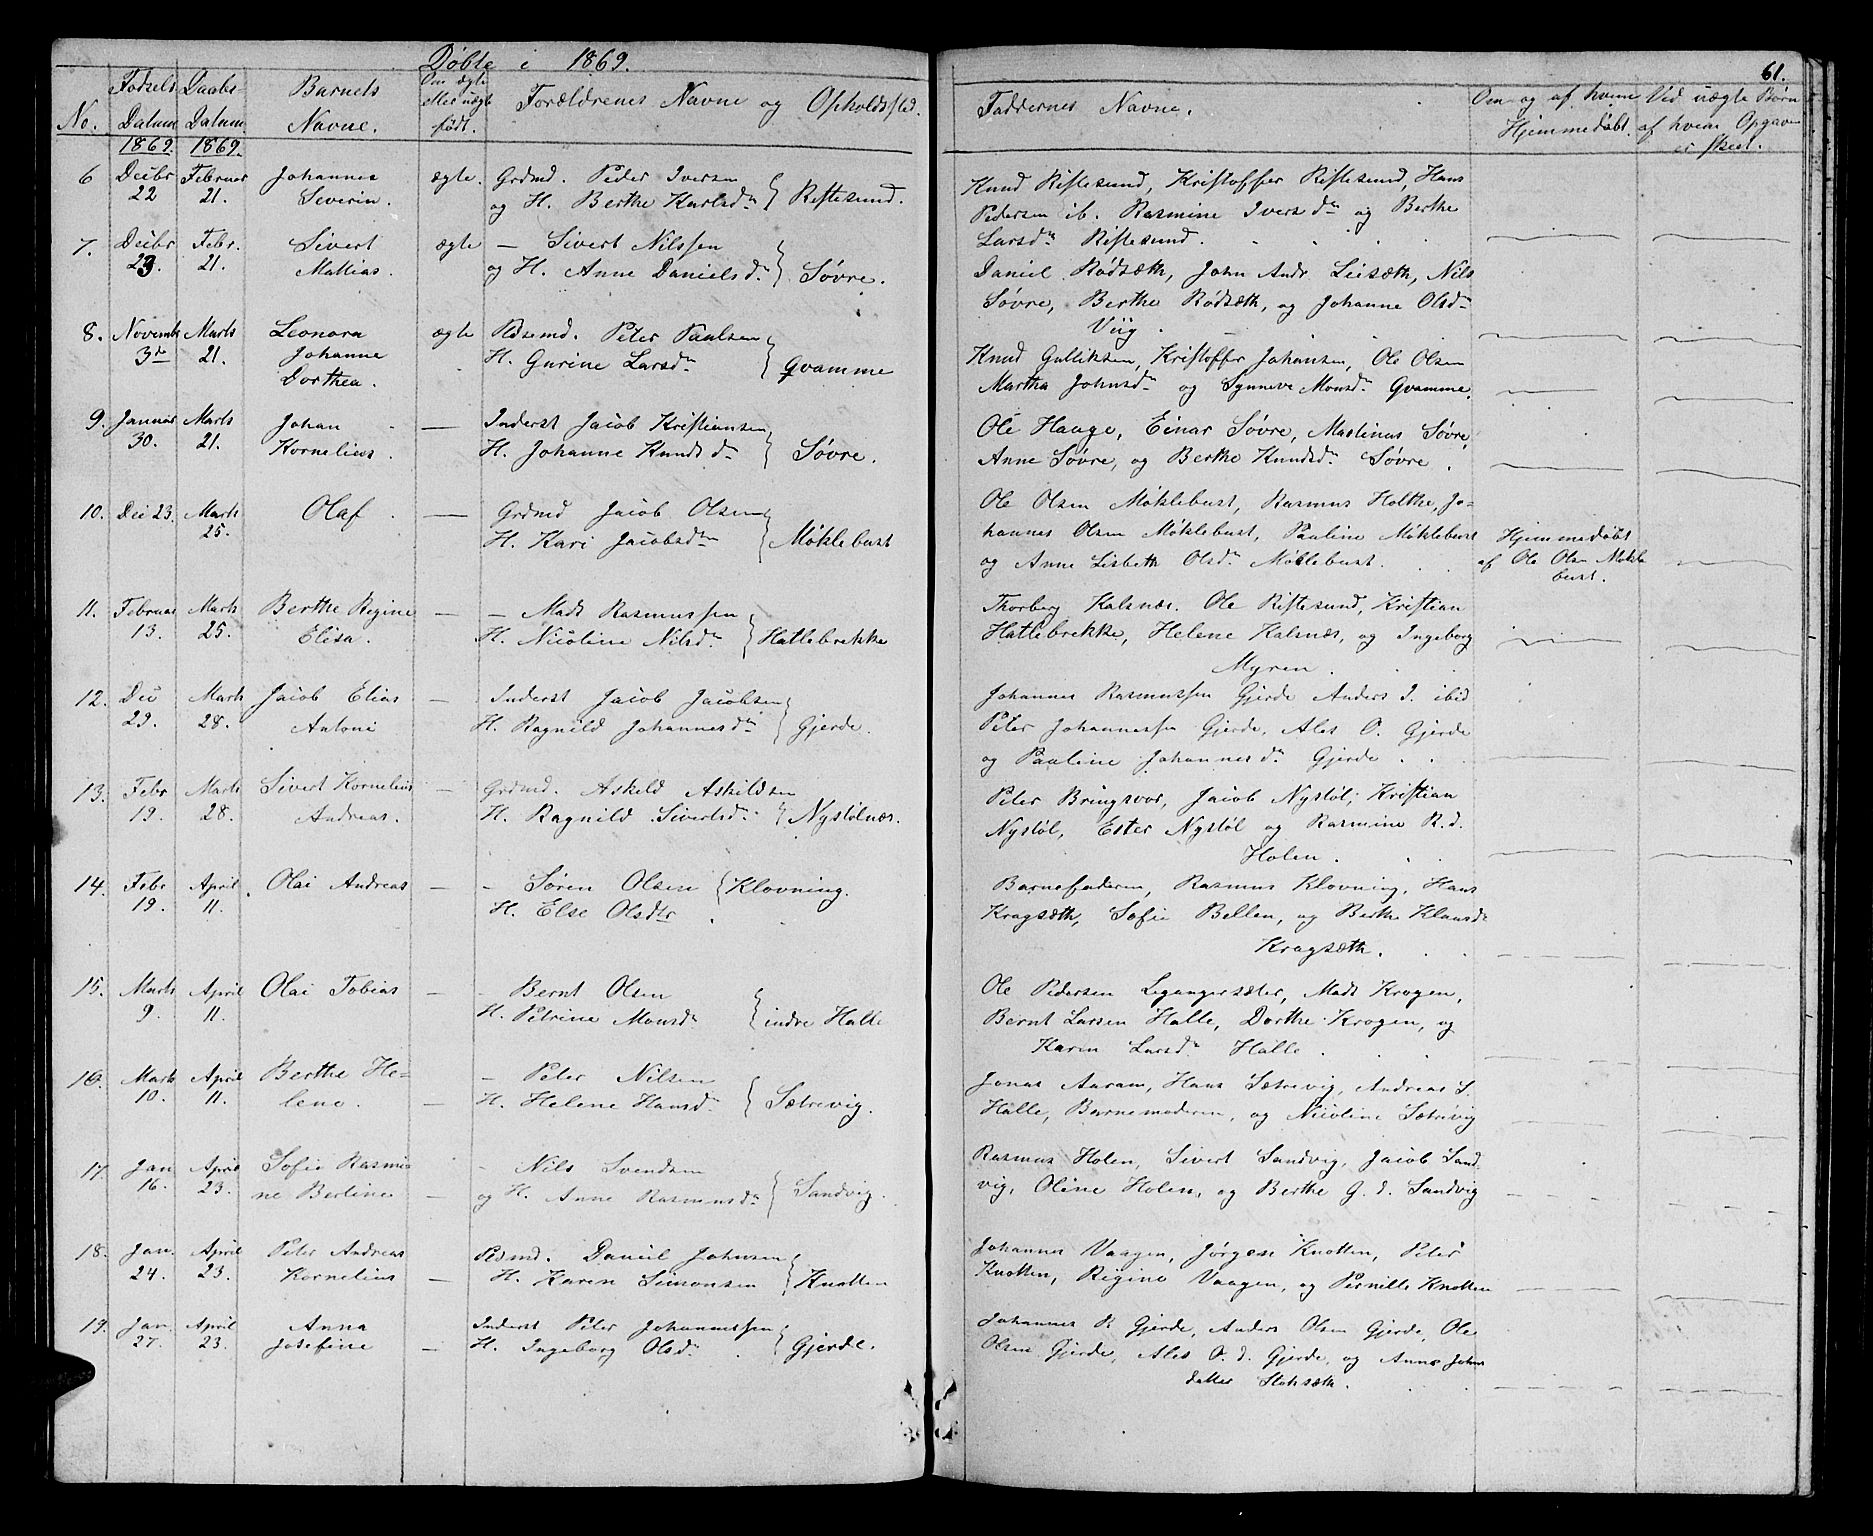 Døbte i 1869.
61.
No.
Fødsels Datum 1869.
Daabs-Datum 1869.
Barnets Navne.
Om ægte eller uægte født.
Forældrenes Navne og Opholdssted.
Faddernes Navne.
Om og af hvem Hjemmedøbt.
Ved uægte Børn af hvem Opgaven er skeet.
6 Decbr 22 Februar 21. Johannes Severin. ægte. Grdmd. Peder Iversen
og H. Berthe Karlsdtr } Riftesund.
Knud Riftesund, Kristoffer Riftesund, Hans
Pedersen ib. Rasmine Iversdr og Berthe
Larsdr Riftesund.
7. Decbr 23 Febr. 21. Sivert Mathias. ægte — Sivert Nilssen
og H. Anne Danielsdr } Søvre.
Daniel Rødsæth, John Andr. Leisæth, Nils
Søvre, Berthe Rødsæth, og Johanne Olsdr
Viig.
8. Novembr 3die Marts 21. Leonora Johanne Dorthea. ægte Pdsemd. Peter Paulsen
H. Gurine Larsdr } Qvamme
Knud Gulliksen, Kristoffer Johansen, Ole Olsen
Martha Johnsdr og Synneve Monsdr Qvamme.
9. Januar 30. Marts 21. Johan Kornelius. — Inderst Jacob Kristiansen
H. Johanne Knudsdr } Søvre.
Ole Hauge, Einar Søvre, Martinus Søvre,
Anne Søvre, og Berthe Knudsdr Søvre.
10. Dec 23. Marts 25. Olaf — Grdmd Jacob Olsen
H. Kari Jacobsdtr } Møklebust
Ole Olsen Møklebust, Rasmus Holthe, Jo-
hannes Olsen Møklebust, Pauline Møklebust
og Anne Lisbeth Olsdr Møklebust.
Hjemmedøbt
af Ole Olsen Møkle
bust.
11. Februar 13. Marts 25. Berthe Regine Elisa. — — Mads Rasmussen
H. Nicoline Nilsdr } Hatlebrekke
Thorberg Kalsnæs. Ole Riftesund, Kristian
Hatlebrekke, Helene Kalsnæs, og Ingeborg
Myren.
12. Dec 29. Marts 28. Jacob Elias Antoni — Inderst Jacob Jacobsen
H. Ragnild Johannesdr } Gjerde.
Johannes Rasmussen Gjerde Anders I. ibid
Peter Johannessen Gjerde, Ales O. Gjerde
og Pauline Johannesdr Gjerde.
13. Febr 19. Marts 28. Sivert Kornelius Andreas. — Grdmd. Askild Askildsen
H. Ragnild Sivertsdr } Nystølnæs.
Peter Bringsvor, Jacob Nystøl, Kristian
Nystøl, Ester Nystøl og Rasmine R.d.
Holen.
14. Febr 19. April 11. Olai Andreas — — Søren Olsen } Klovning.
H. Else Olsdtr
Barnefaderen, Rasmus Klovning, Hans
Kragsæth, Sofie Bellen, og Berthe Klausdr
Kragsæth.
15. Marts 9. April 11. Olai Tobias — — Bernt Olsen
H. Petrine Monsdr } indre Halle
Ole Pedersen Legangersæter, Mads Krogen,
Bernt Larsen Halle, Dorthe Krogen, og
Karen Larsdr Halle.
16. Marts 10. April 11. Berthe He-lene. — — Peter Nilsen
H. Helene Hansdr } Sætrevig.
Jonas Aaram, Hans Sætrevig, Andreas S.
Halle, Barnemoderen, og Nicoline Sætrevig
17. Jan 16. April 23. Sofie Rasmi-ne Berline — — Nils Svendsen
og H. Anne Rasmusdr } Sandvig.
Rasmus Holen, Sivert Sandvig, Jacob Sand
vig, Oline Holen, og Berthe G. d. Sandvig
18. Jan. 24. April 23. Peter Andreas Kornelius — Pdsmd. Daniel Johnsen
H. Karen Simonsen } Knotten
Johannes Vaagen, Jørgen Knotten, Peter
Knotten, Regine Vaagen, og Pernille Knotten
19. Jan. 27. April 23. Anna Josefine — Inderst Peter Johannessen
H. Ingeborg Olsdr } Gjerde.
Johannes R Gjerde, Anders Olsen Gjerde, Ole
Olsen Gjerde, Ales O. d. Gjerde, og Anne Johns
datter Stoksæth.